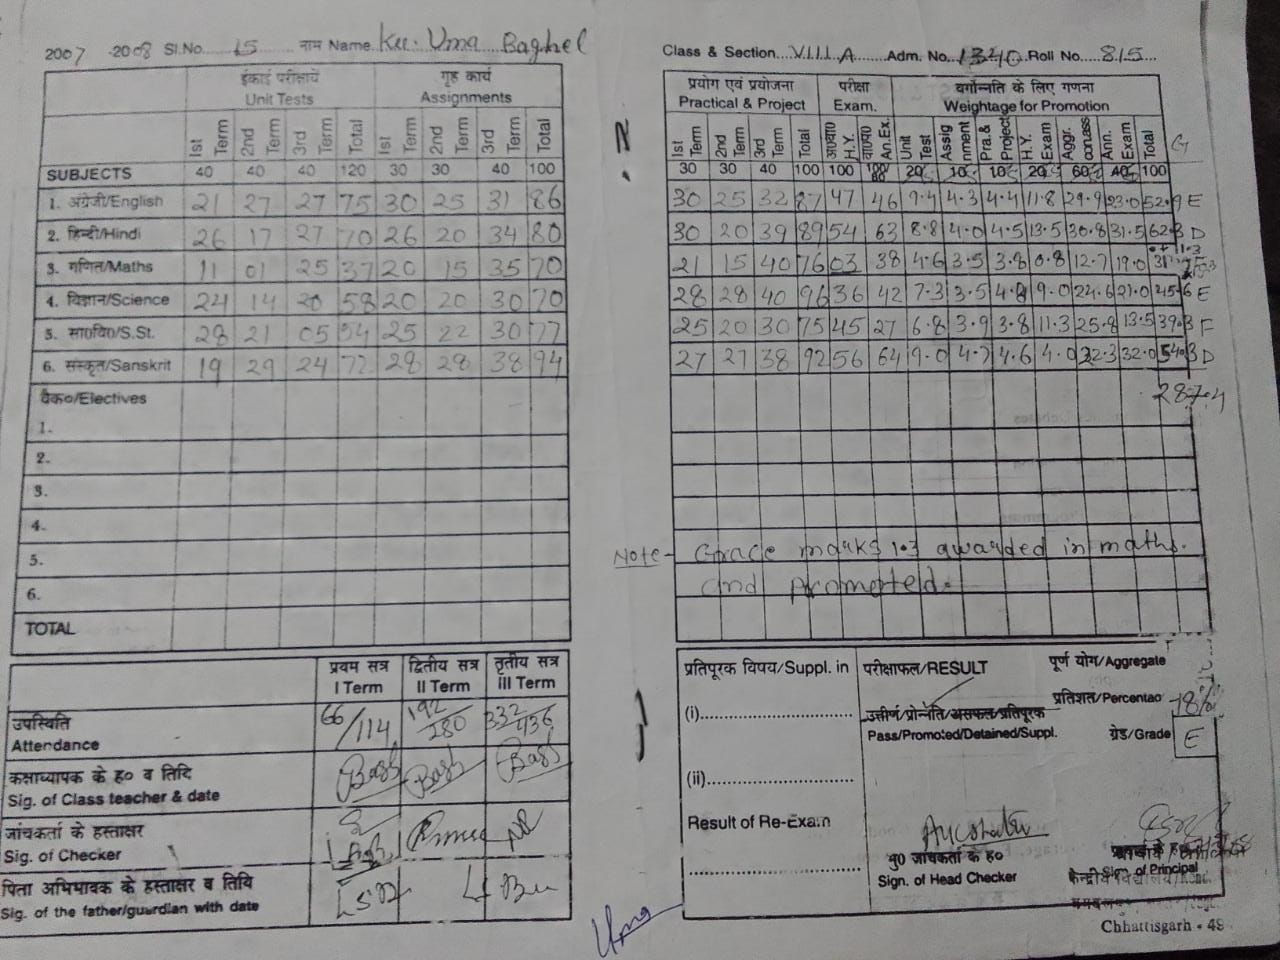 2007 - 2008 Sl.No. 15 नाम Name Ku. Uma Baghel
इकाई परीक्षायें गृह कार्य
Unit Tests Assignments
1st Term 2nd Term 3rd Term Total 1st Term 2nd Term 3rd Term Total
SUBJECTS 40 40 40 120 30 30 40 100
1. अंग्रेजी/English 21 27 27 75 30 25 31 86
2. हिन्दी/Hindi 26 17 27 70 26 20 34 80
3. गणित/Maths 11 01 25 37 20 15 35 70
4. विज्ञान/Science 24 14 20 58 20 20 30 70
5. सा०वि०/S.St. 28 21 05 54 25 22 30 77
6. संस्कृत/Sanskrit 19 29 24 72 28 28 38 94
वैक०/Electives
1.
2.
3.
4.
5.
6.
TOTAL
प्रथम सत्र द्वितीय सत्र तृतीय सत्र
I Term II Term III Term
उपस्थिति
Attendance 66/114 192/280 332/436
कक्षाध्यापक के ह० व तिथि
Sig. of Class teacher & date
जांचकर्ता के हस्ताक्षर
Sig. of Checker
पिता अभिभावक के हस्ताक्षर व तिथि
Sig. of the father/guardian with date
Class & Section VIII A Adm. No. 1340 Roll No. 815
प्रयोग एवं प्रयोजना परीक्षा वर्गोन्नति के लिए गणना
Practical & Project Exam. Weightage for Promotion
1st Term 2nd Term 3rd Term Total H.Y. An.Ex. Unit Test Assignment Pra.& Project H.Y. Exam Aggr. Ann. Exam Total G
30 30 40 100 100 20 10 10 20 60 40 100
30 25 32 87 47 46 9.4 4.3 4.4 11.8 29.9 23.0 52.9 E
30 20 39 89 54 63 8.8 4.0 4.5 13.5 30.8 31.5 62.3 D
21 15 40 76 03 38 4.6 3.5 3.8 0.8 12.7 19.0 31.7 + 1.3
28 28 40 96 36 42 7.3 3.5 4.8 9.0 24.6 21.0 45.6 E
25 20 30 75 45 27 6.8 3.9 3.8 11.3 25.8 13.5 39.3 F
27 27 38 92 56 64 9.0 4.7 4.6 4.0 22.3 32.0 54.3 D
287.4
Note - Grace marks 1.3 awarded in maths.
and Promoted.
प्रतिपूरक विषय/Suppl. in
(i)
(ii)
Result of Re-Exam
परीक्षाफल/RESULT पूर्ण योग/Aggregate
प्रतिशत/Percentage 48%
उत्तीर्ण/प्रोन्नति/असफल/प्रतिपूरक
Pass/Promoted/Detained/Suppl. ग्रेड/Grade E
मु० जांचकर्ता के ह०
Sign. of Head Checker
Sign. of Principal
केन्द्रीय विद्यालय
Uma
Chhattisgarh - 49